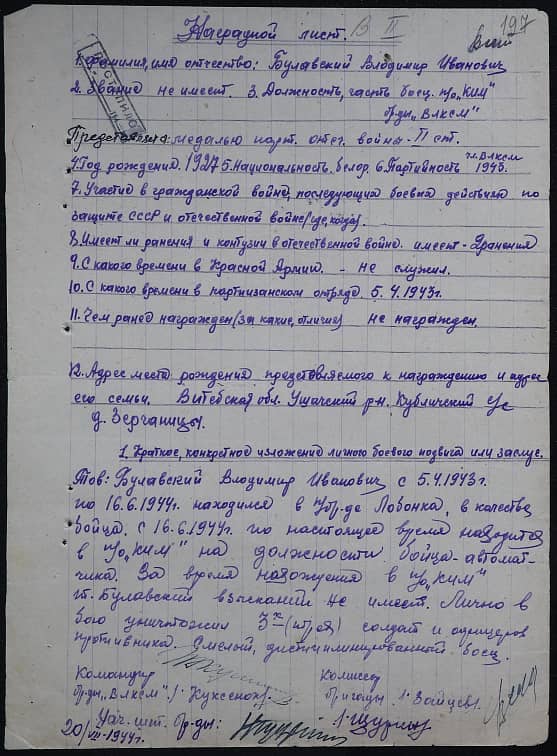 197
Наградной лист.
В II
1. Фамилия, имя отчество: Булавский Владимир Иванович
2. Звание не имеет. 3. Должность, часть боец п/о "КИМ"
бр-ды "ВЛКСМ"
Представляется: медалью парт. отеч. войны - II ст.
4. Год рождения. 1927 5. Национальность. белор. 6. Партийность чл. ВЛКСМ 1943.
7. Участие в гражданской войне, последующих боевых действиях по
защите СССР и отечественной войне (где, когда).
8. Имеет ли ранения и контузии в отечественной войне. имеет - 2 ранения
9. С какого времени в Красной Армии. - не служил.
10. С какого времени в партизанском отряде. 5.4.1943г.
11. Чем ранее награжден (за какие, отличия) не награжден.
12. Адрес места рождения представляемого к награждению и адрес
его семьи. Витебская обл. Ушачский р-н. Кубличский с/с
д. Зерчаницы.
1. Краткое, конкретное изложение личного боевого подвига или заслуг.
Тов: Булавский Владимир Иванович с 5.4.1943г.
по 16.6.1944г. находился в п/бр-де Лобонка, в качестве
бойца. С 16.6.1944г. по настоящее время находится
в п/о "КИМ" на должности бойца-автомат-
чика. За время нахождения в п/о "КИМ"
т. Булавский взысканий не имеет. Лично в
бою уничтожил 3х (трех) солдат и офицеров
противника. Смелый, дисциплинированный боец.
Командир Комиссар
бр-ды "ВЛКСМ" /. Куксенок/. бригады /. Зайцев/.
Нач. шт. бр-ды: /. Щурин/
20/VII-1944г.